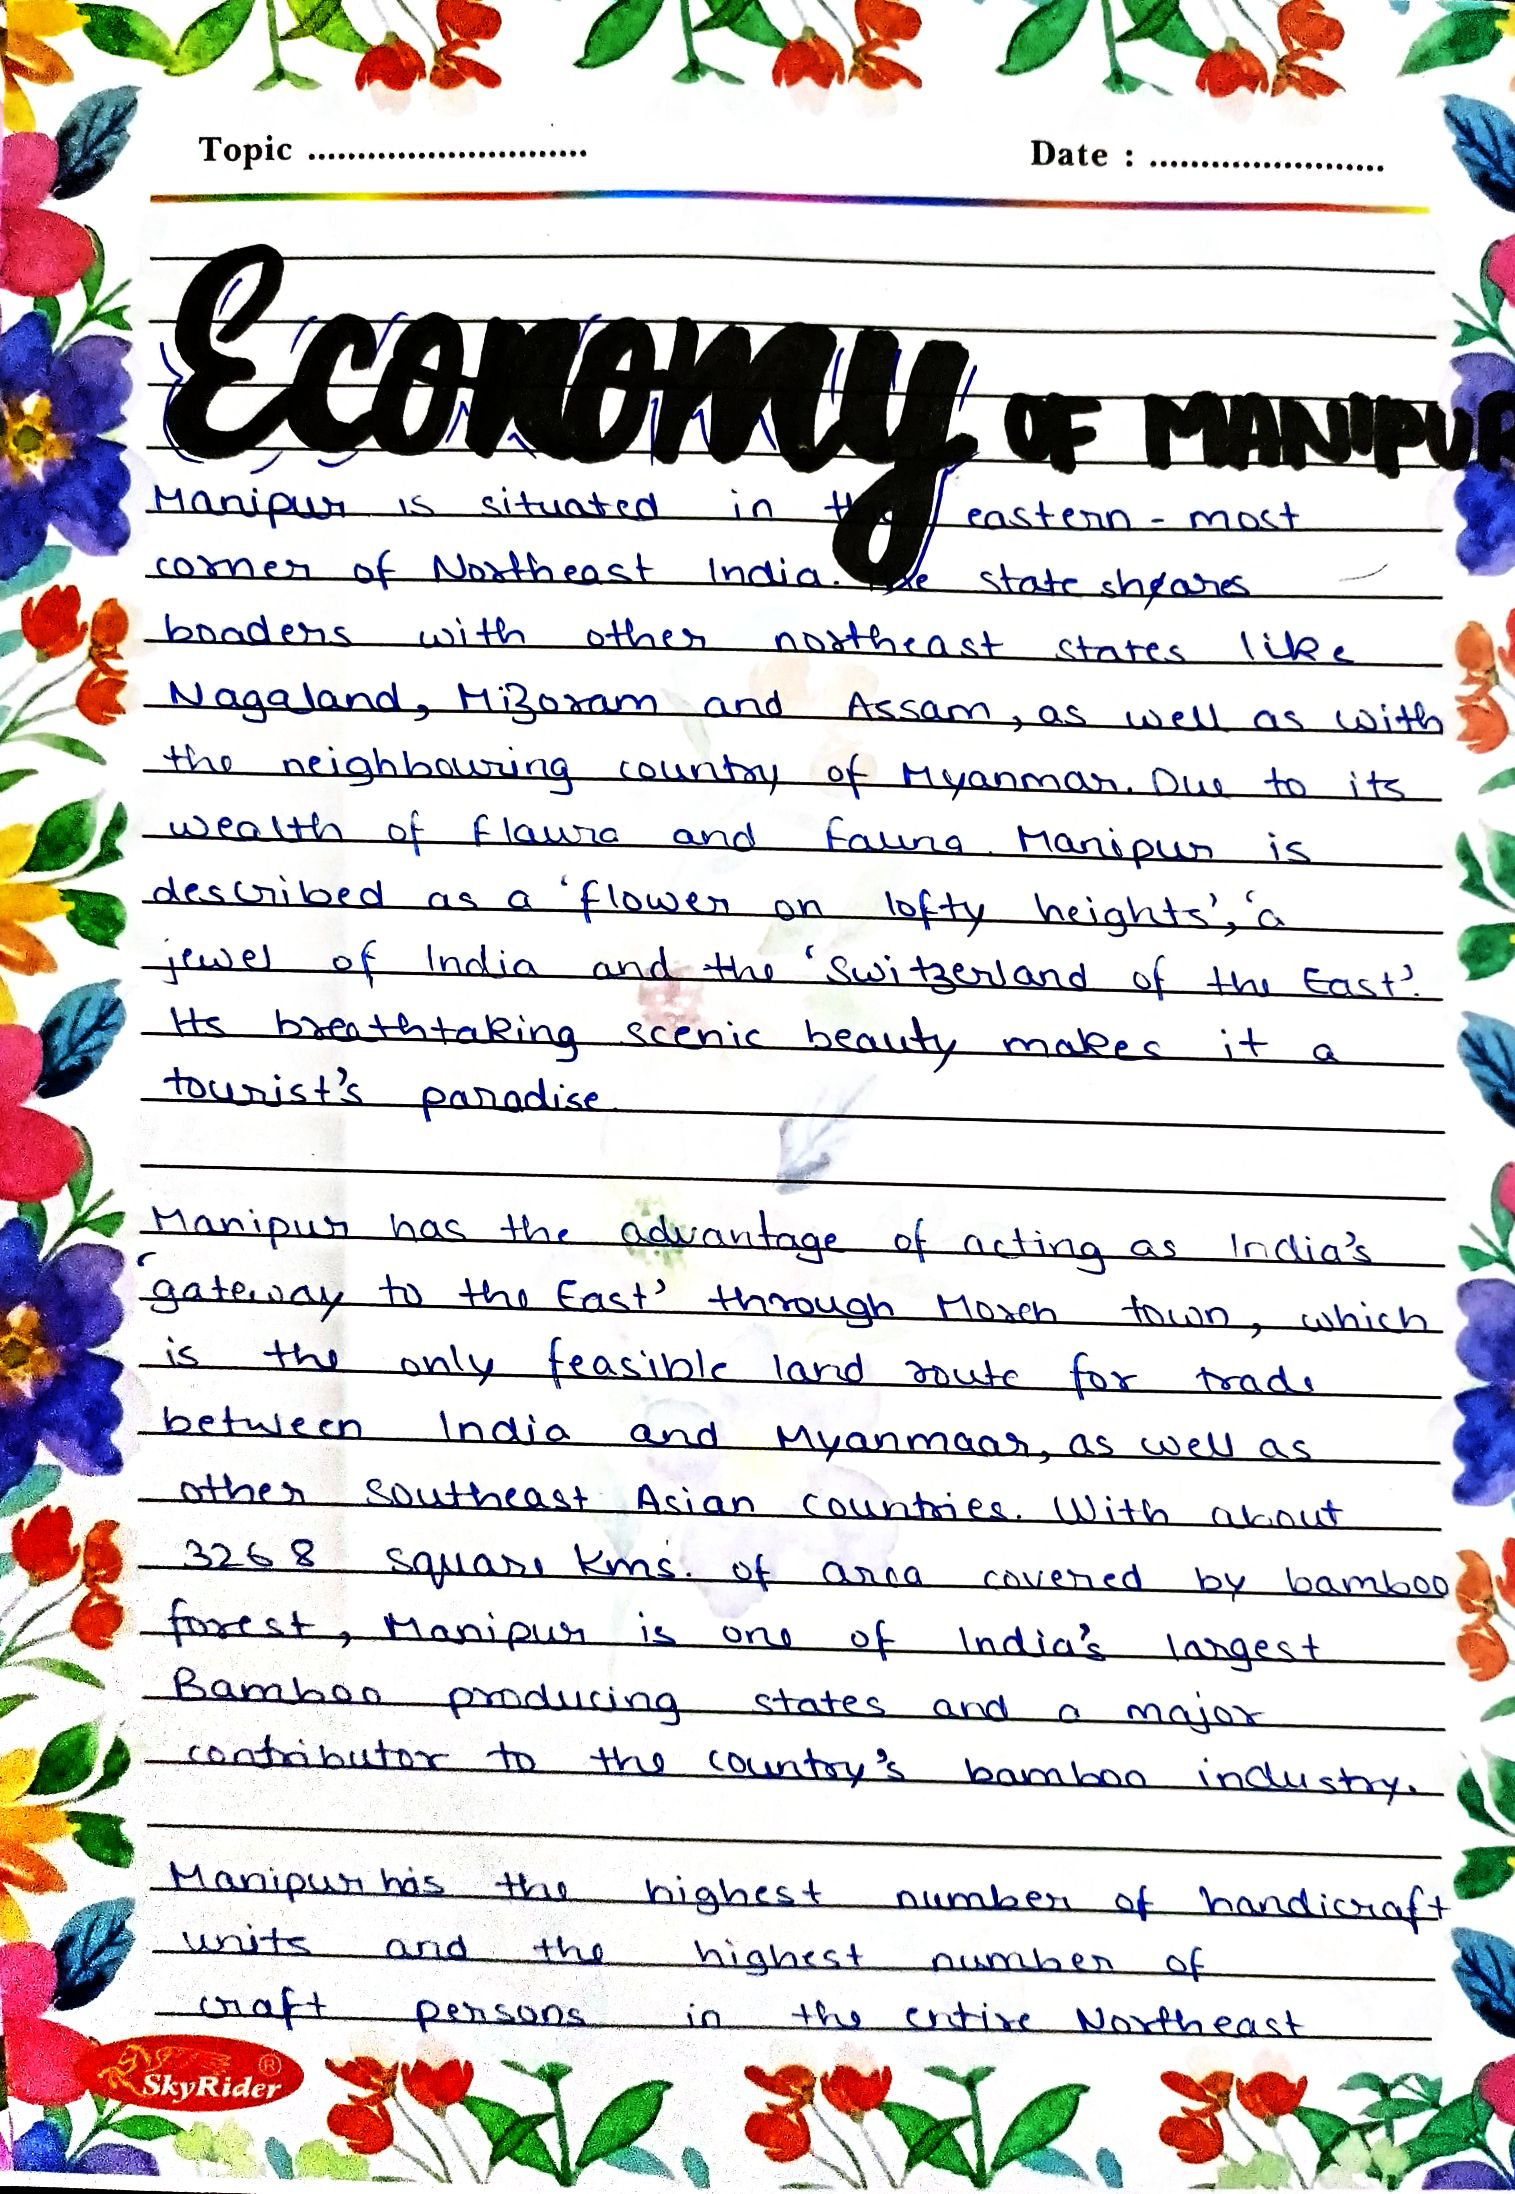 Topic ............................ Date : ........................
Economy OF MANIPUR
Manipur is situated in the eastern - most
corner of Northeast India. The state sheares
boaders with other northeast states like
Nagaland, Mizoram and Assam, as well as with
the neighbouring country of Myanmar. Due to its
wealth of flaura and fauna. Manipur is
described as a 'flower on lofty heights', 'a
jewel of India and the 'Switzerland of the East'.
Its breathtaking scenic beauty makes it a
tourist's paradise.
Manipur has the advantage of acting as India's
'gateway to the East' through Moreh town, which
is the only feasible land route for trade
between India and Myanmaar, as well as
other southeast Asian countries. With about
3268 square kms. of area covered by bamboo
forest, Manipur is one of India's largest
Bamboo producing states and a major
contributor to the country's bamboo industry.
Manipur has the highest number of handicraft
units and the highest number of
craft persons in the entire Northeast
SkyRider ®